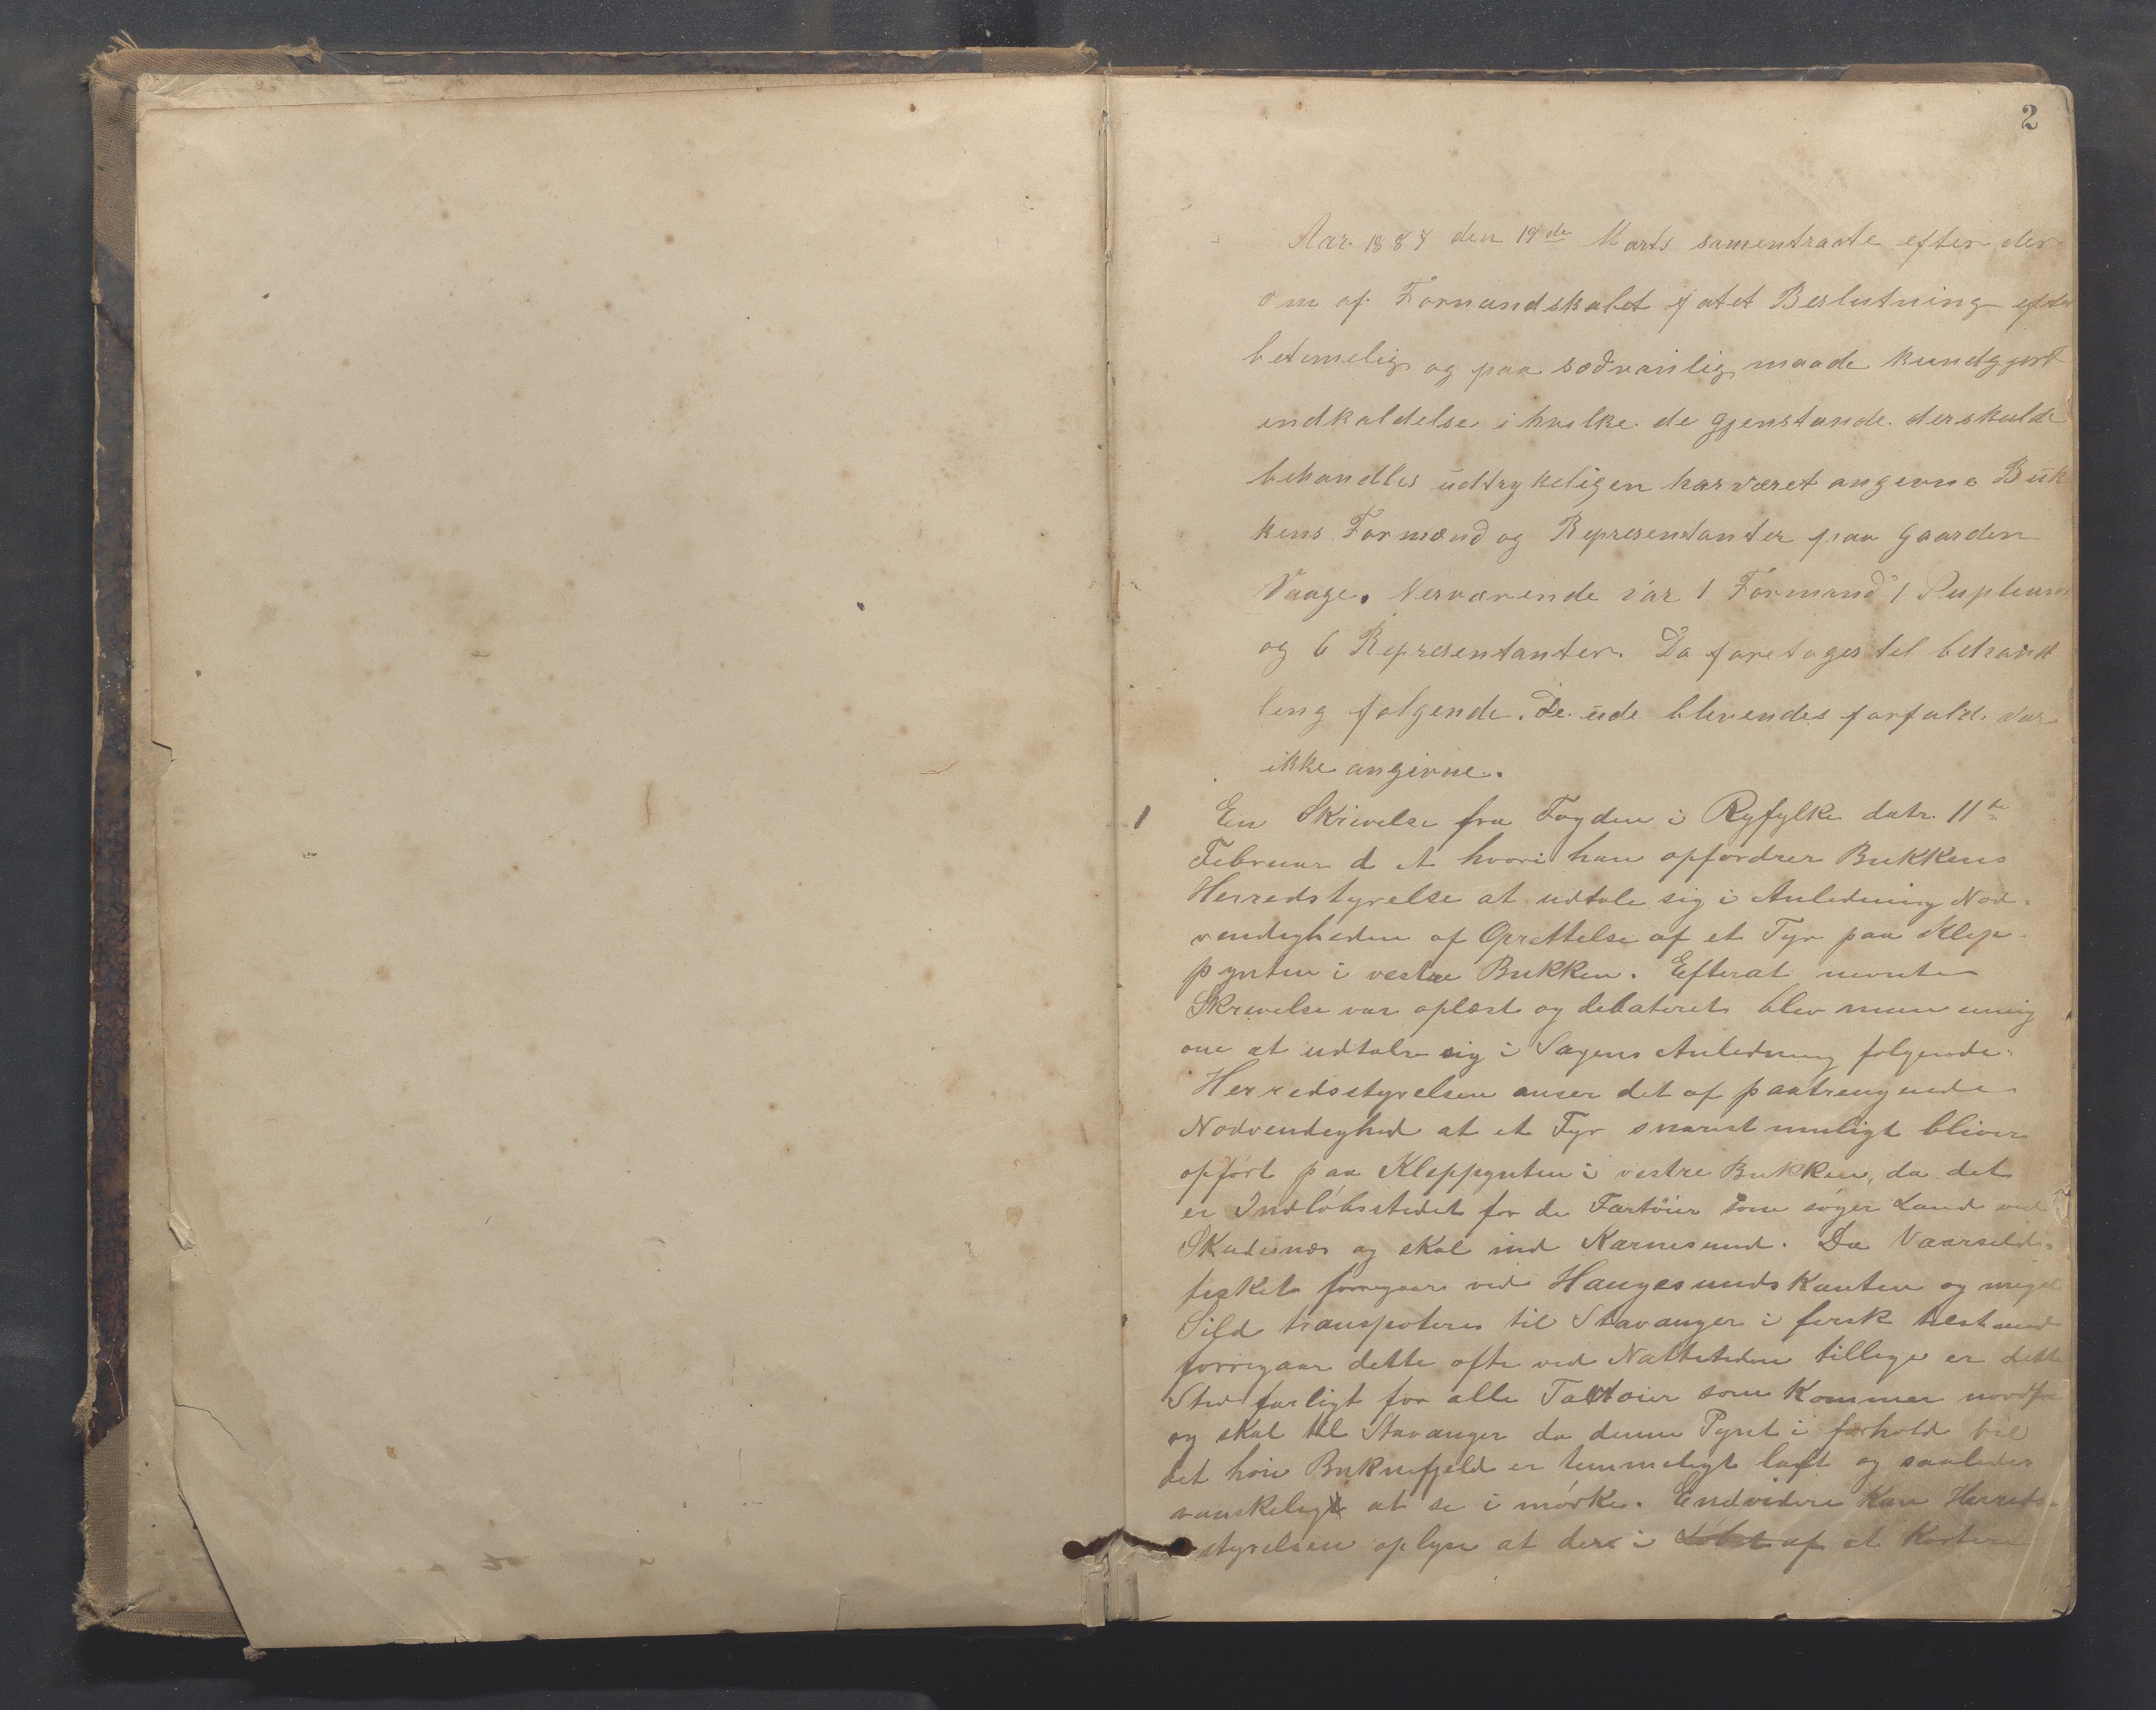 2
Aar. 1887 den 19de Marts samentraate efter der
om af Formandskabet fatet Beslutning efter
betimelig og paa sedvanlig maade kundgjort
indkaldelse i hvilke de gjenstande der skulde
behandles udtrykeligen har været angivne Buk
kens Formænd og Representanter paa gaarden
Vaage. Nerværende var 1 Formand 1 Supleant
og 6 Representanter. Da foretoges til behand
ling følgende. De ude blevendes forfald var
ikke angivne.
1 En Skrivelse fra Fogden i Ryfylke datr. 11te
Februar d A hvori han opfordrer Bukkens
Herredstyrelse at udtale sig i Anledning Nød-
vendigheden af Oprettelse af et Fyr paa Klep-
pynten i vestre Bukken. Efterat nevnte
Skrivelse var oplæst og debateret blev man enig
om at udtale sig i Sagens Anledning følgende.
Herredsstyrelsen anser det af paatrengende
Nødvendighed at et Fyr snarest muligt bliver
opført paa Kleppynten i vestre Bukken, da det
er Indløbsstedet for de Fartöier som søger Land ved
Skudesnæs og skal ind Karmsund. Da Vaarsild-
fisket foregaar ved Haugesundskanten og meget
Sild transpoteres til Stavanger i fersk tilstand
forregaar dette ofte ved Nattetiden tillige er dette
Sted farligt for alle Fartøier som kommer nordfra
og skal til Stavanger da denne Pynt i forhold til
det høie Buknefjeld er temmeligt lavt og saaledes
vanskeligt at se i mørke. Endvidere kan Herreds-
styrelsen oplyse at der i Løbet af et kortere